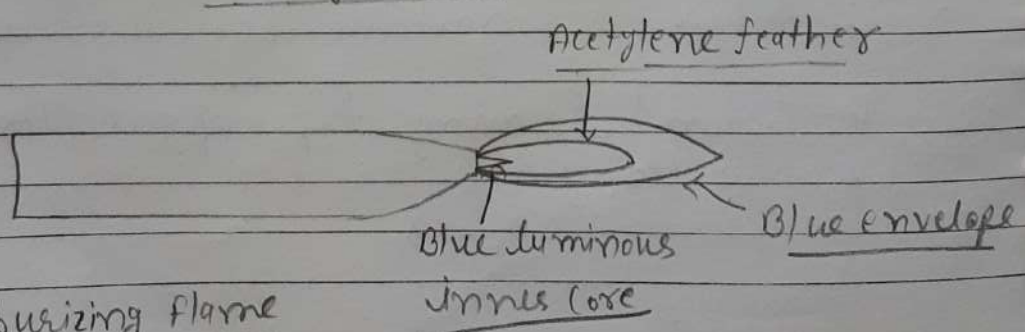 Acetylene feather
Blue luminous
inner core
Blue envelope
burizing flame